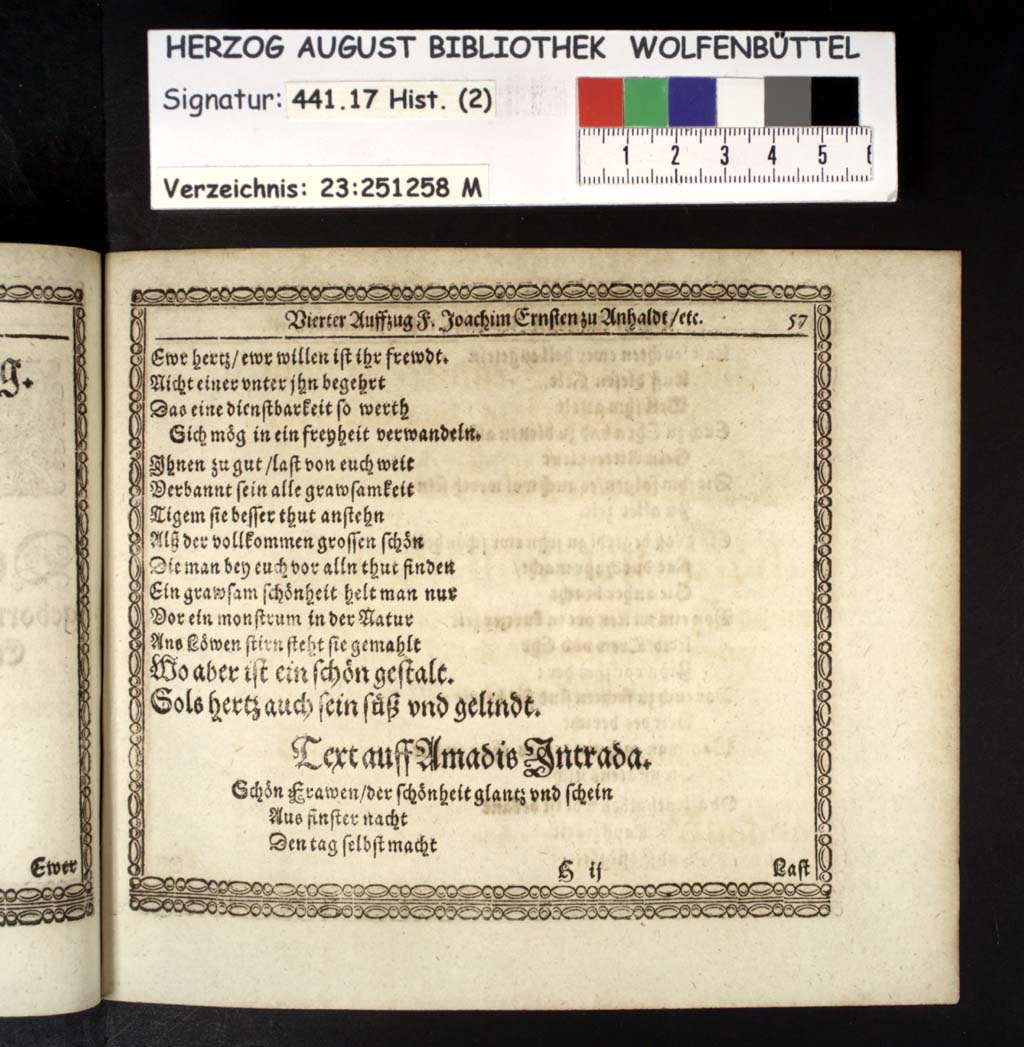 HERZOG AUGUST BIBLIOTHEK WOLFENBÜTTEL
Signatur: 441.17 Hist. (2)
Verzeichnis: 23:251258 M
1 2 3 4 5 6
g.
Ewer
Vierter Auffzug F. Joachim Ernsten zu Anhaldt/etc. 57
Ewr hertz/ewr willen ist ihr frewdt.
Nicht einer vnter jhn begehrt
Das eine dienstbarkeit so werth
Sich mög in ein freyheit verwandeln.
Ihnen zu gut/last von euch weit
Verbannt sein alle grawsamkeit
Tigern sie besser thut anstehn
Alß der vollkommen grossen schön
Die man bey euch vor alln thut finden
Ein grawsam schönheit helt man nur
Vor ein monstrum in der Natur
Ans Löwen stirn steht sie gemahlt
Wo aber ist ein schön gestalt.
Sols hertz auch sein süß vnd gelindt.
Text auff Amadis Intrada.
Schön Frawen/der schönheit glantz vnd schein
Aus finster nacht
Den tag selbst macht
H ij Last